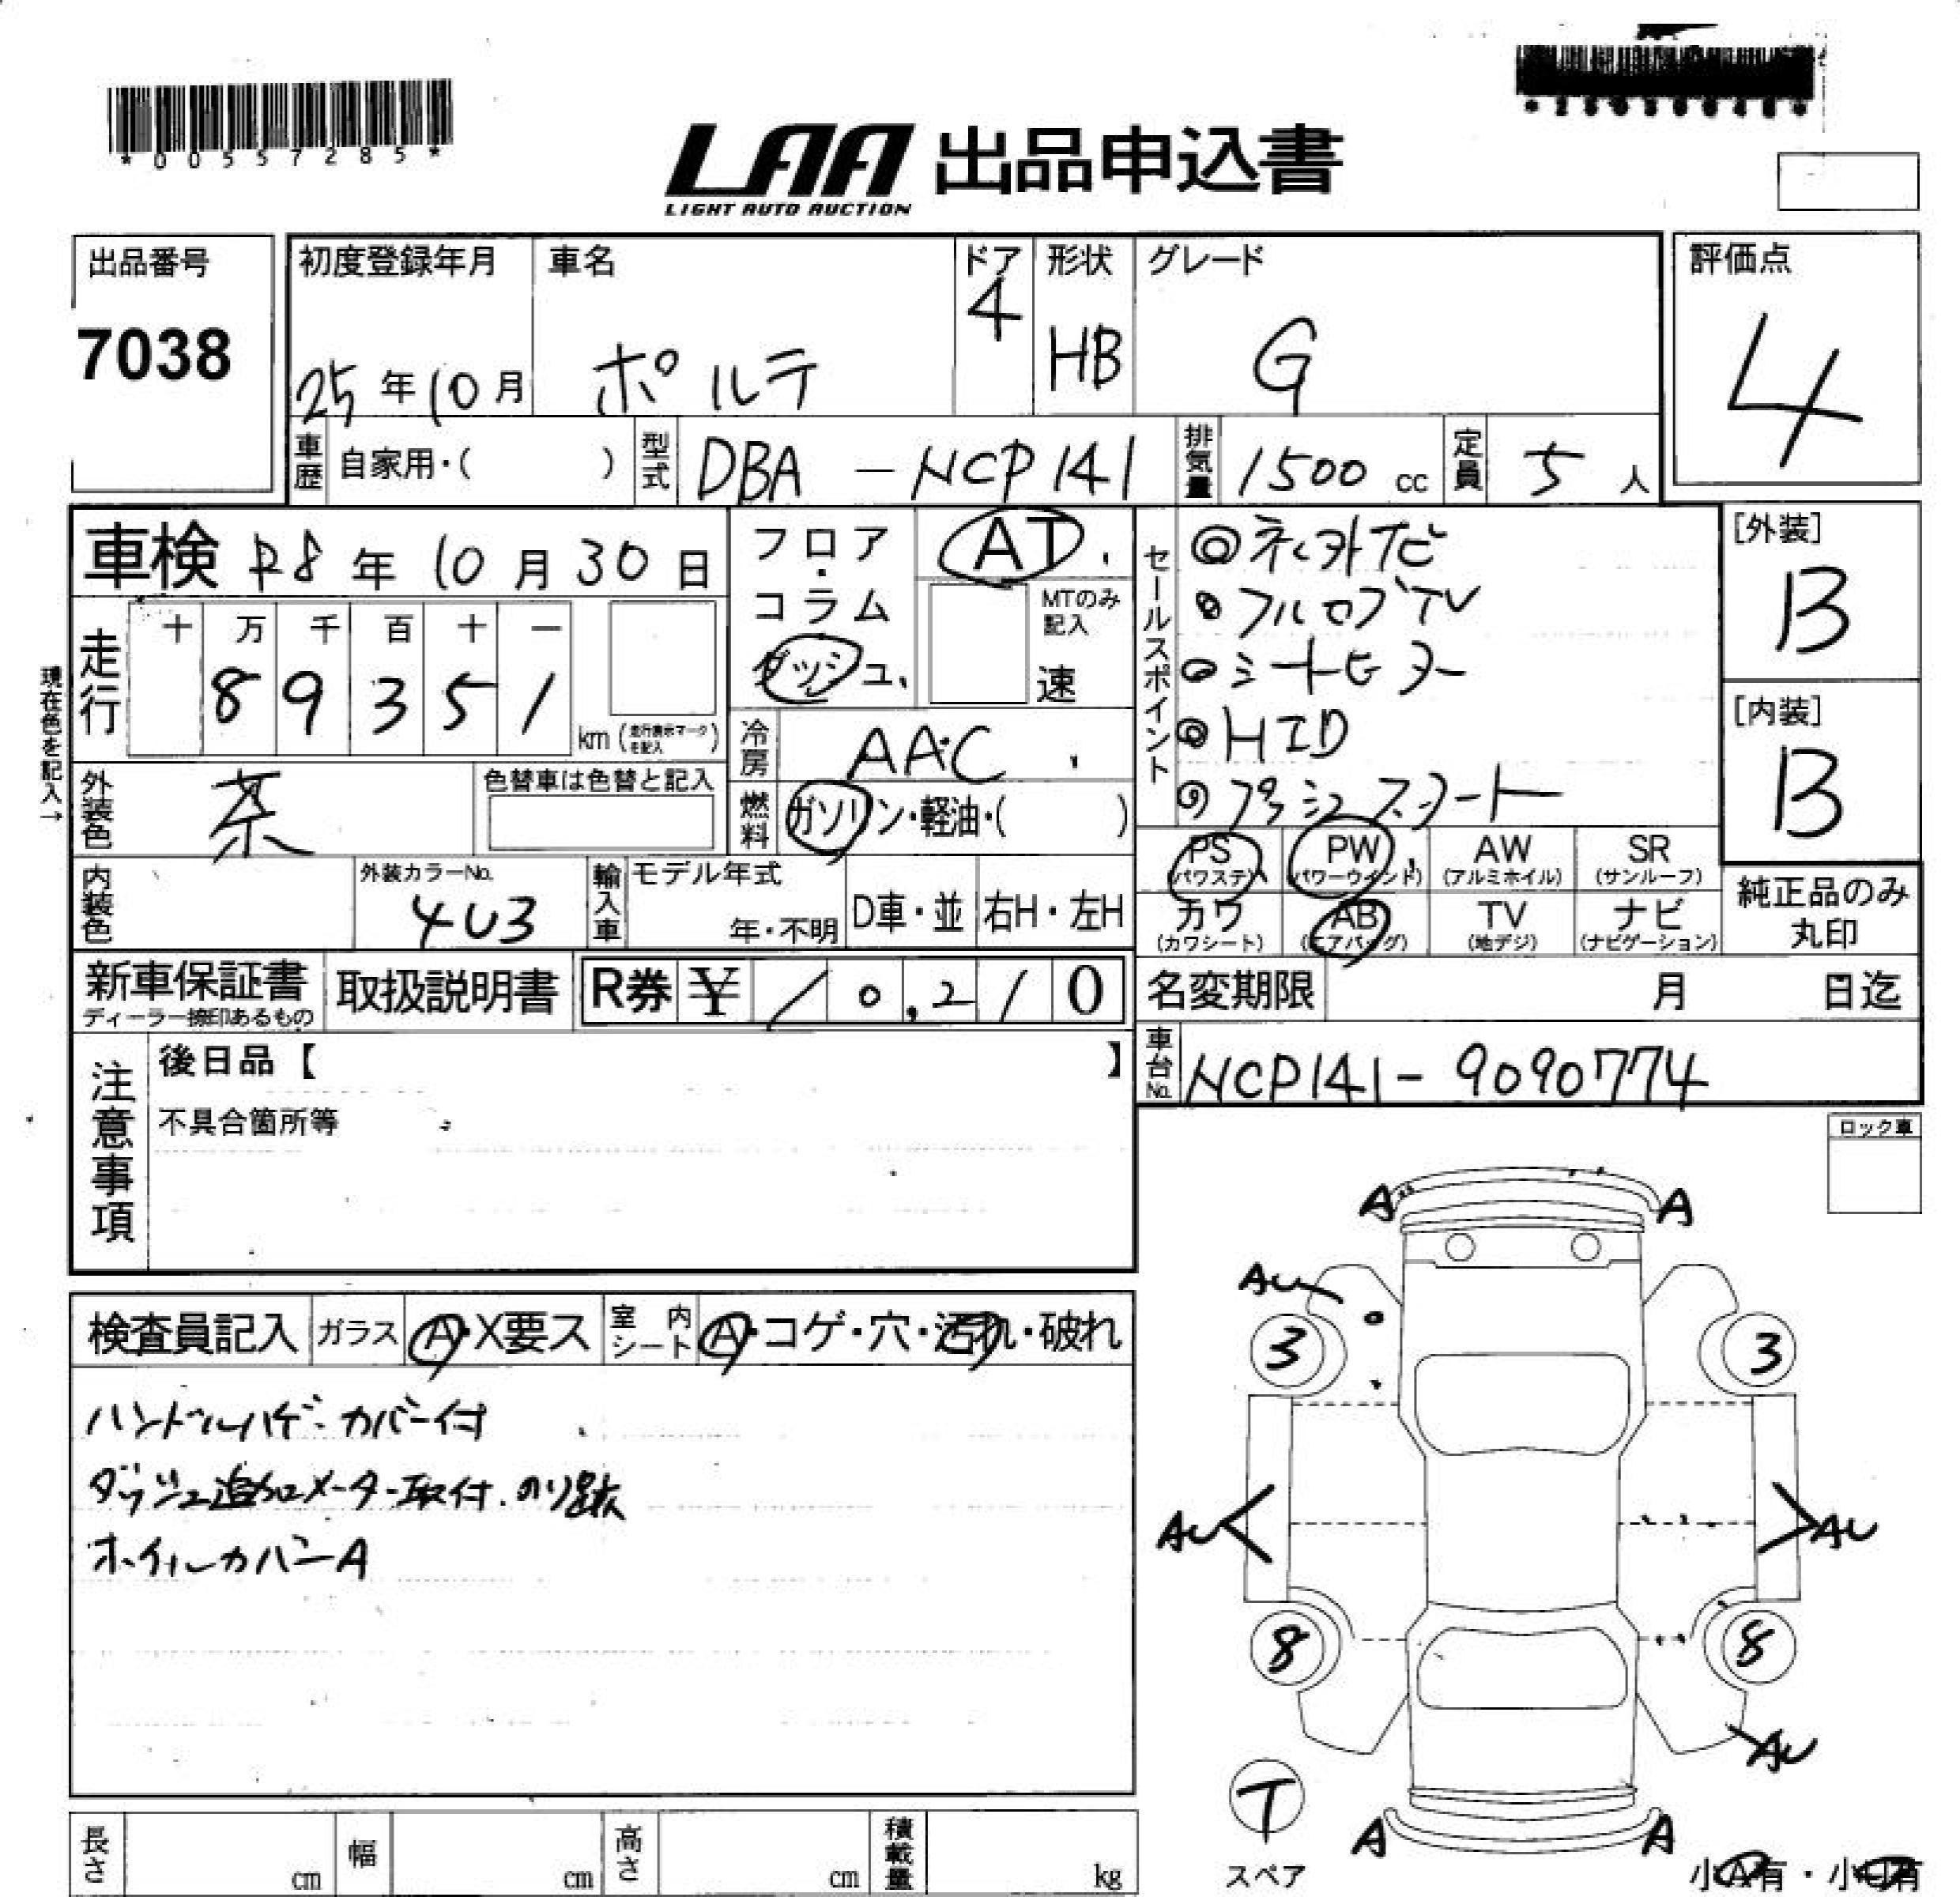 *00557285*
LAA 出品申込書
LIGHT AUTO AUCTION
出品番号
7038
初度登録年月
25年10月
車名
ポルテ
ドア
4
形状
HB
グレード
G
評価点
4
車歴 自家用・( )
型式 DBA-NCP141
排気量 1500 cc
定員 5人
車検 R8年10月30日
フロア・コラム
ダッシュ
AT
MTのみ記入
速
セールスポイント
◎ネ外ナビ
◎フルセグTV
◎シートヒーター
◎HID
◎プッシュスタート
[外装]
B
[内装]
B
現在色を記入→
走行
十 万 千 百 十 一
8 9 3 5 1
km (走行表示マークを記入)
冷房 AAC
外装色 茶
色替車は色替と記入
燃料 ガソリン・軽油・( )
PS (パワステ)
PW (パワーウインド)
AW (アルミホイル)
SR (サンルーフ)
内装色
外装カラーNo.
4U3
輸入車
モデル年式
年・不明
D車・並
右H・左H
カワ (カワシート)
AB (エアバッグ)
TV (地デジ)
ナビ (ナビゲーション)
純正品のみ丸印
新車保証書
ディーラー捺印あるもの
取扱説明書
R券 ¥10,210
名変期限 月 日迄
車台No. NCP141-9090774
注意事項
後日品【 】
不具合箇所等
ロック車
検査員記入
ガラス A・X要ス
室内シート A・コゲ・穴・汚れ・破れ
ハンドルハゲ・カバー付
ダッシュ追加メーター取付.のり跡
ホイルカバーA
A A
AU
3 3
AU AU
8 8
AU
T
スペア
A A
長さ cm
幅 cm
高さ cm
積載量 kg
小A有・小U有